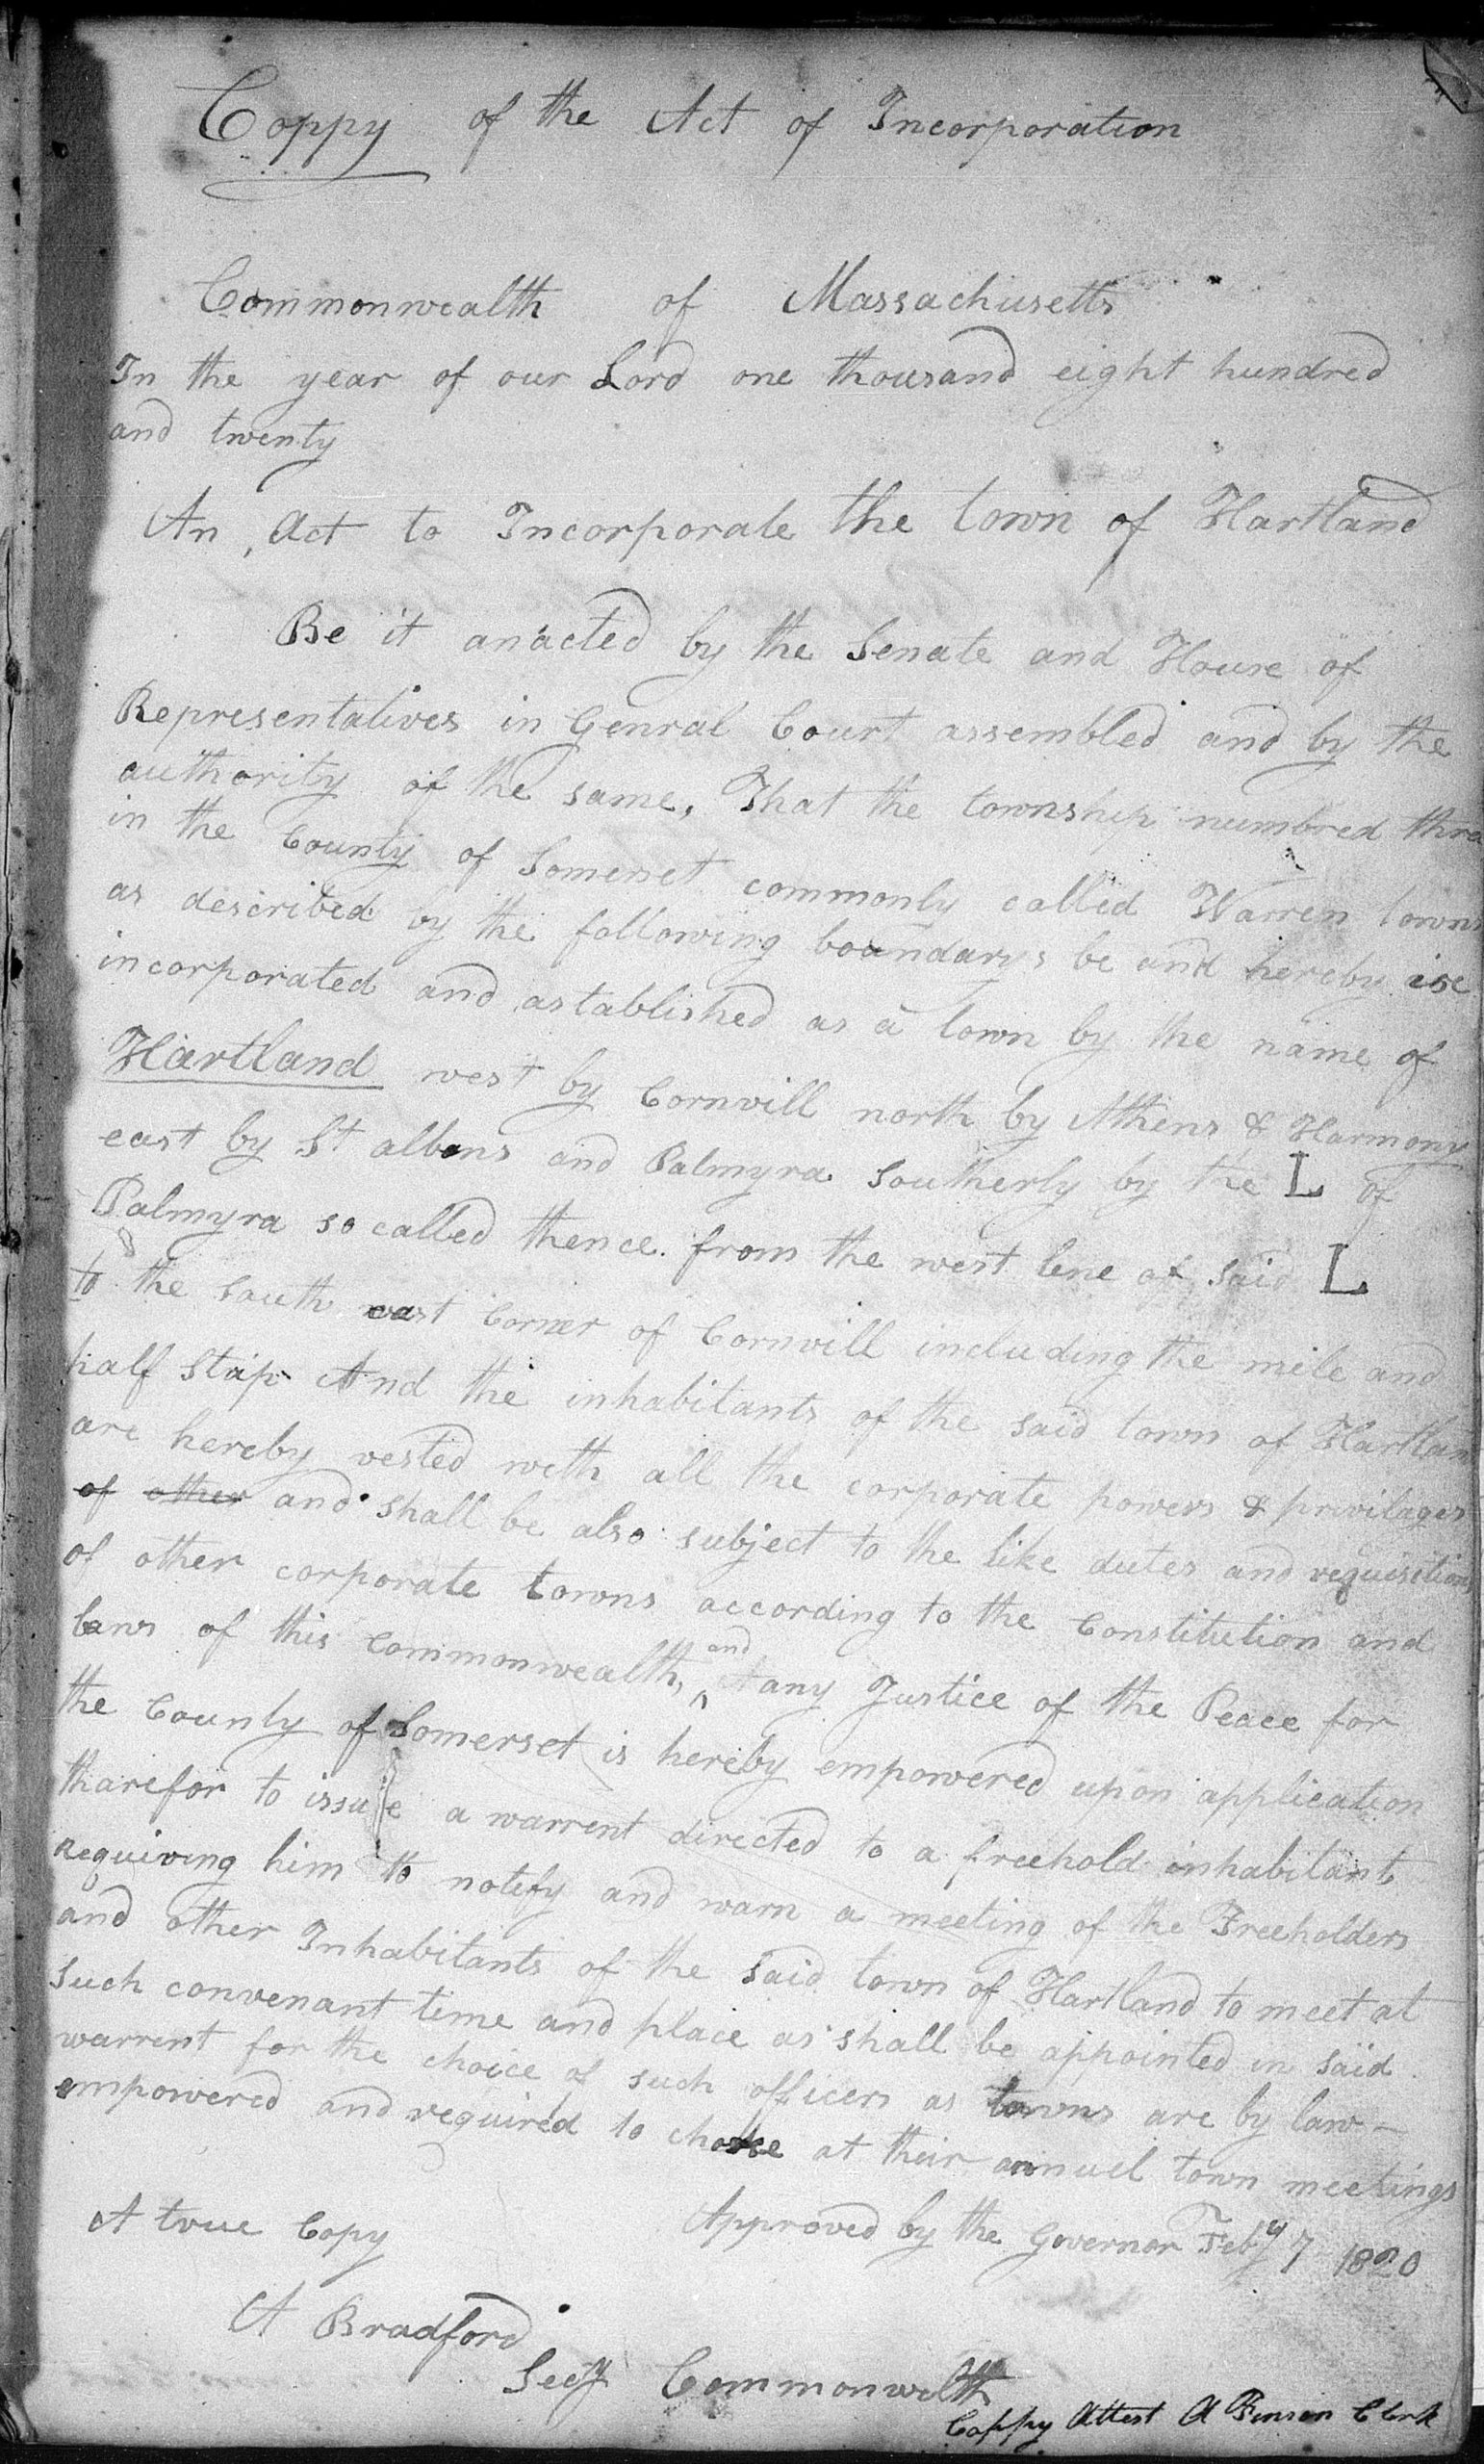 Coppy of the Act of Incorporation
Commonwealth of Massachusetts
In the year of our Lord one thousand eight hundred
and twenty
An Act to Incorporate the town of Hartland
Be it anacted by the Senate and House of
Representatives in Genral Court assembled and by the
authority of the same, That the township numbred thre
in the County of Somerset commonly called Warren town
as described by the following boundarys be and hereby is
incorporated and astablished as a town by the name of
Hartland west by Cornvill north by Athens & Harmony
east by St albans and Palmyra Southerly by the L of
Palmyra so called thence from the west line of said L
to the South east Corner of Cornvill including the mile and
half Strip And the inhabitants of the said town of Hartlan
are hereby vested with all the corporate powers & privilages
of other and shall be also subject to the like dutes and requisitions
of other corporate towns according to the Constitution and
laws of this Commonwealth, and any Justice of the Peace for
the County of Somerset is hereby empowered upon application
tharefor to issue a warrent directed to a freehold inhabitant
Requiring him to notefy and warn a meeting of the Freeholders
and other Inhabitants of the said town of Hartland to meet at
such convenant time and place as shall be appointed in said
warrent for the choice of such officers as towns are by law -
empowered and required to choose at their annuel town meetings
A true Copy Approved by the Governor Feby 7 1820
A Bradford
Secy Commonwelth
Coppy Attest A Clerk